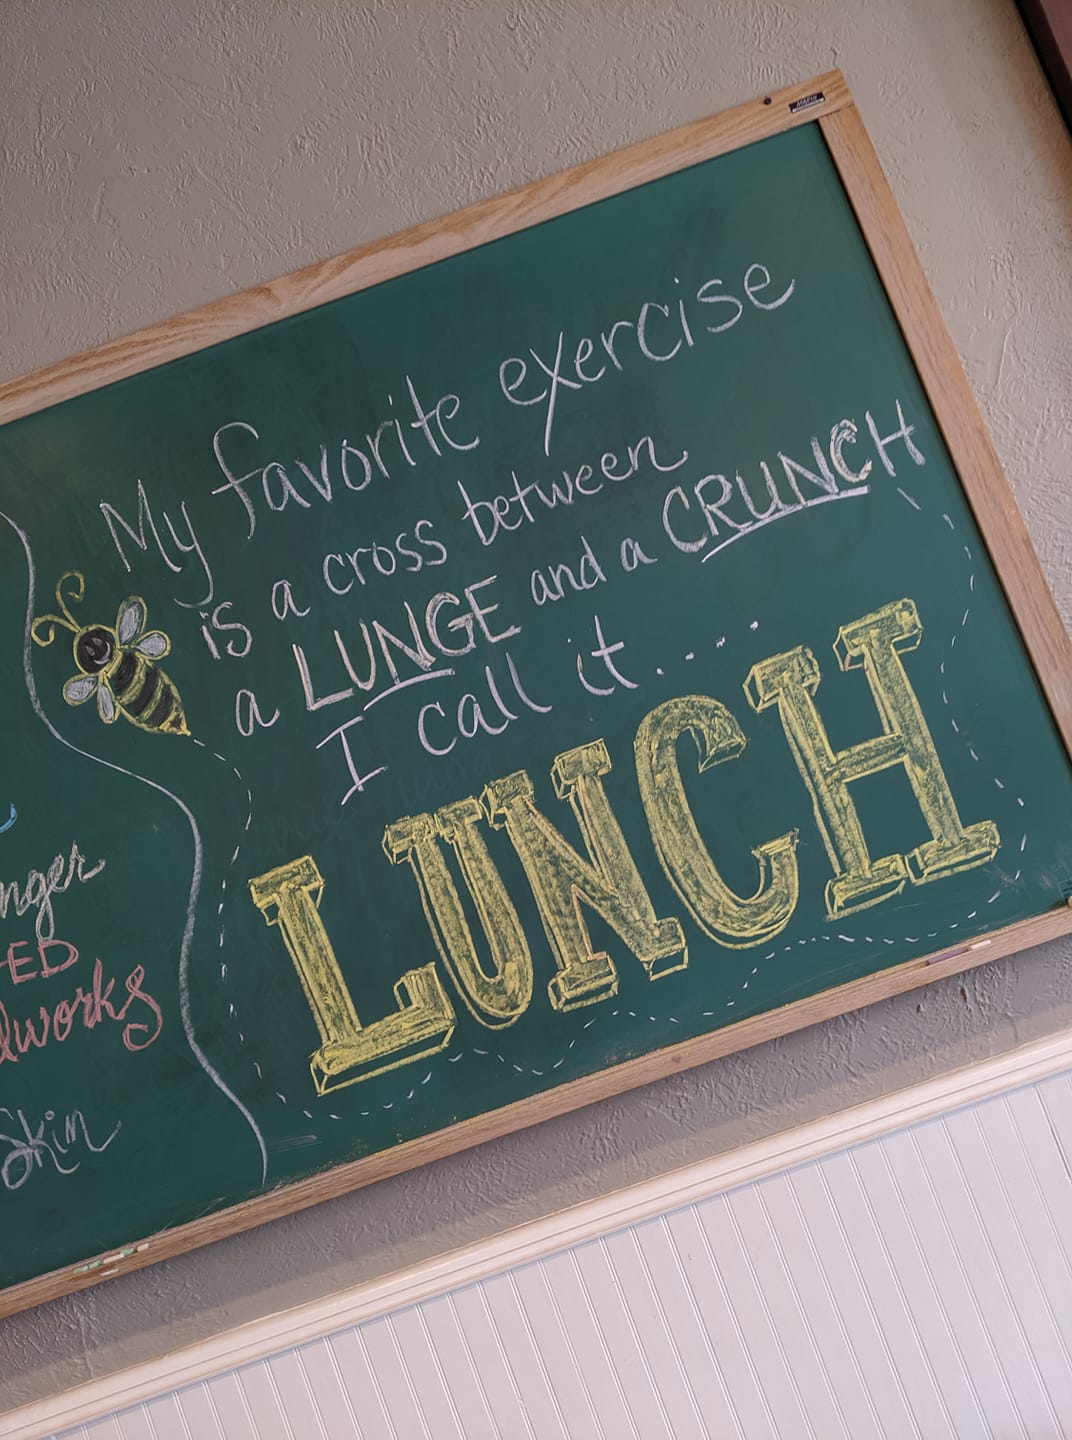 My favorite exercise
is a cross between
a LUNGE and a CRUNCH
I call it....
LUNCH
Skin